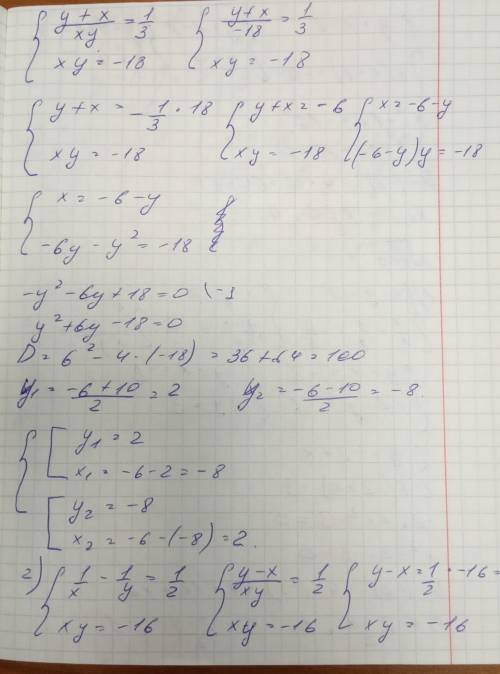 { (y+x)/(xy) = 1/3   { (y+x)/(-18) = 1/3
{ xy = -18   { xy = -18
{ y+x = -1/3 · 18   { y+x = -6   { x = -6-y
{ xy = -18   { xy = -18   { (-6-y)y = -18
{ x = -6-y
{ -6y - y² = -18
-y² - 6y + 18 = 0 \-1
y² + 6y - 18 = 0
D = 6² - 4·(-18) = 36 + 64 = 100
y₁ = (-6+10)/2 = 2   y₂ = (-6-10)/2 = -8
{ [ y₁ = 2
[ x₁ = -6-2 = -8
[ y₂ = -8
[ x₂ = -6-(-8) = 2.
2) { 1/x - 1/y = 1/2   { (y-x)/(xy) = 1/2   { y-x = 1/2 · -16 =
{ xy = -16   { xy = -16   { xy = -16